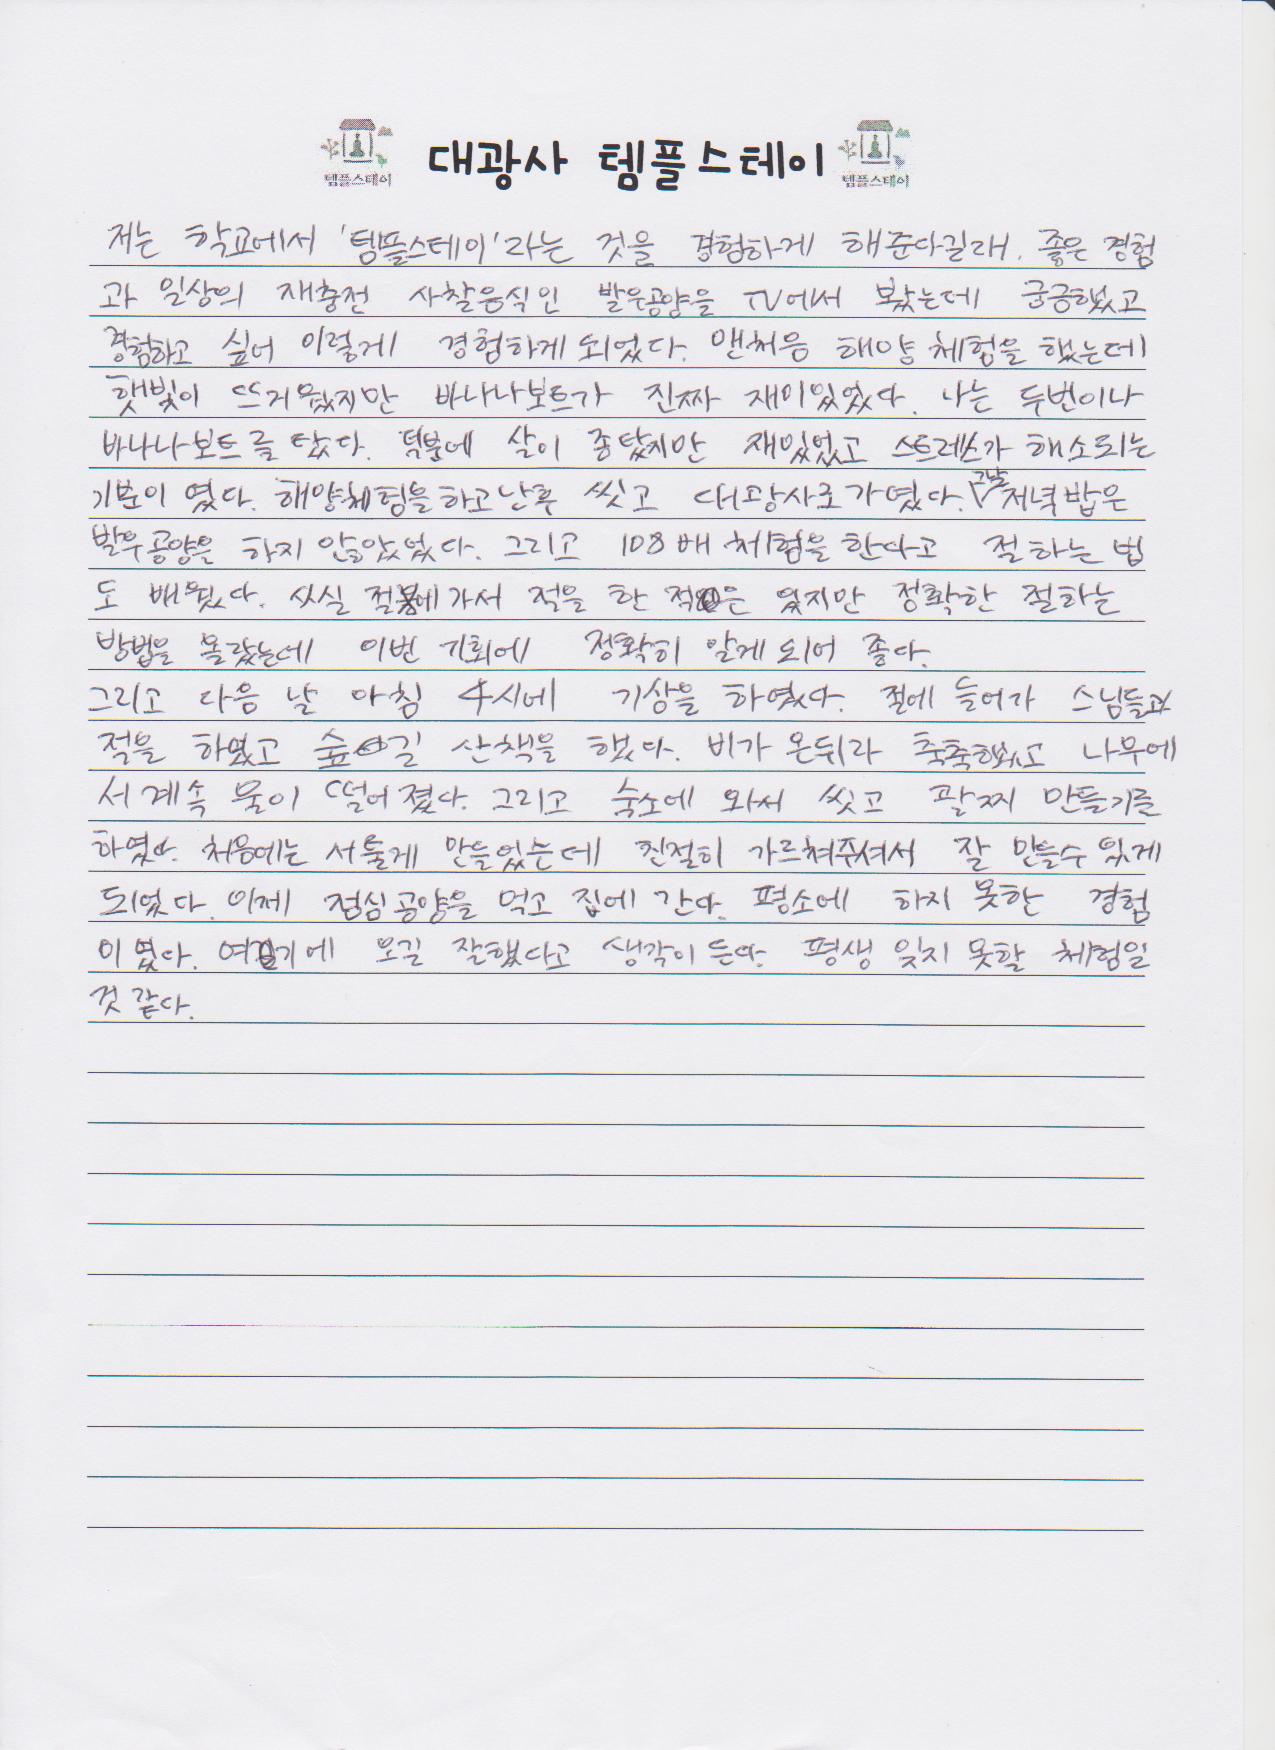 템플스테이 대광사 템플스테이 템플스테이
저는 학교에서 '템플스테이'라는 것을 경험하게 해준다길래. 좋은 경험
과 일상의 재충전 사찰음식인 발우공양을 TV에서 봤는데 궁금했고
경험하고 싶어 이렇게 경험하게 되었다. 맨처음 해양체험을 했는데
햇빛이 뜨거웠지만 바나나보트가 진짜 재미있었다. 나는 두번이나
바나나보트를 탔다. 덕분에 살이 좀 탔지만 재밌었고 스트레스가 해소되는
기분이 였다. 해양체험을 하고 난후 씻고 대광사로 가였다. 그날 저녁밥은
발우공양을 하지 않았었다. 그리고 108배 체험을 한다고 절하는 법
도 배웠다. 사실 절에 가서 적을 한 적은 있지만 정확한 절하는
방법을 몰랐는데 이번 기회에 정확히 알게 되어 좋다.
그리고 다음 날 아침 4시에 기상을 하였다. 절에 들어가 스님들과
적을 하였고 숲길 산책을 했다. 비가 온뒤라 축축했고 나무에
서 계속 물이 떨어 졌다. 그리고 숙소에 와서 씻고 팔찌 만들기를
하였다. 처음에는 서툴게 만들었는데 친절히 가르쳐주셔서 잘 만들수 있게
되었다. 이제 점심공양을 먹고 집에 간다. 평소에 하지 못한 경험
이 였다. 여기에 오길 잘했다고 생각이 든다. 평생 잊지 못할 체험일
것 같다.